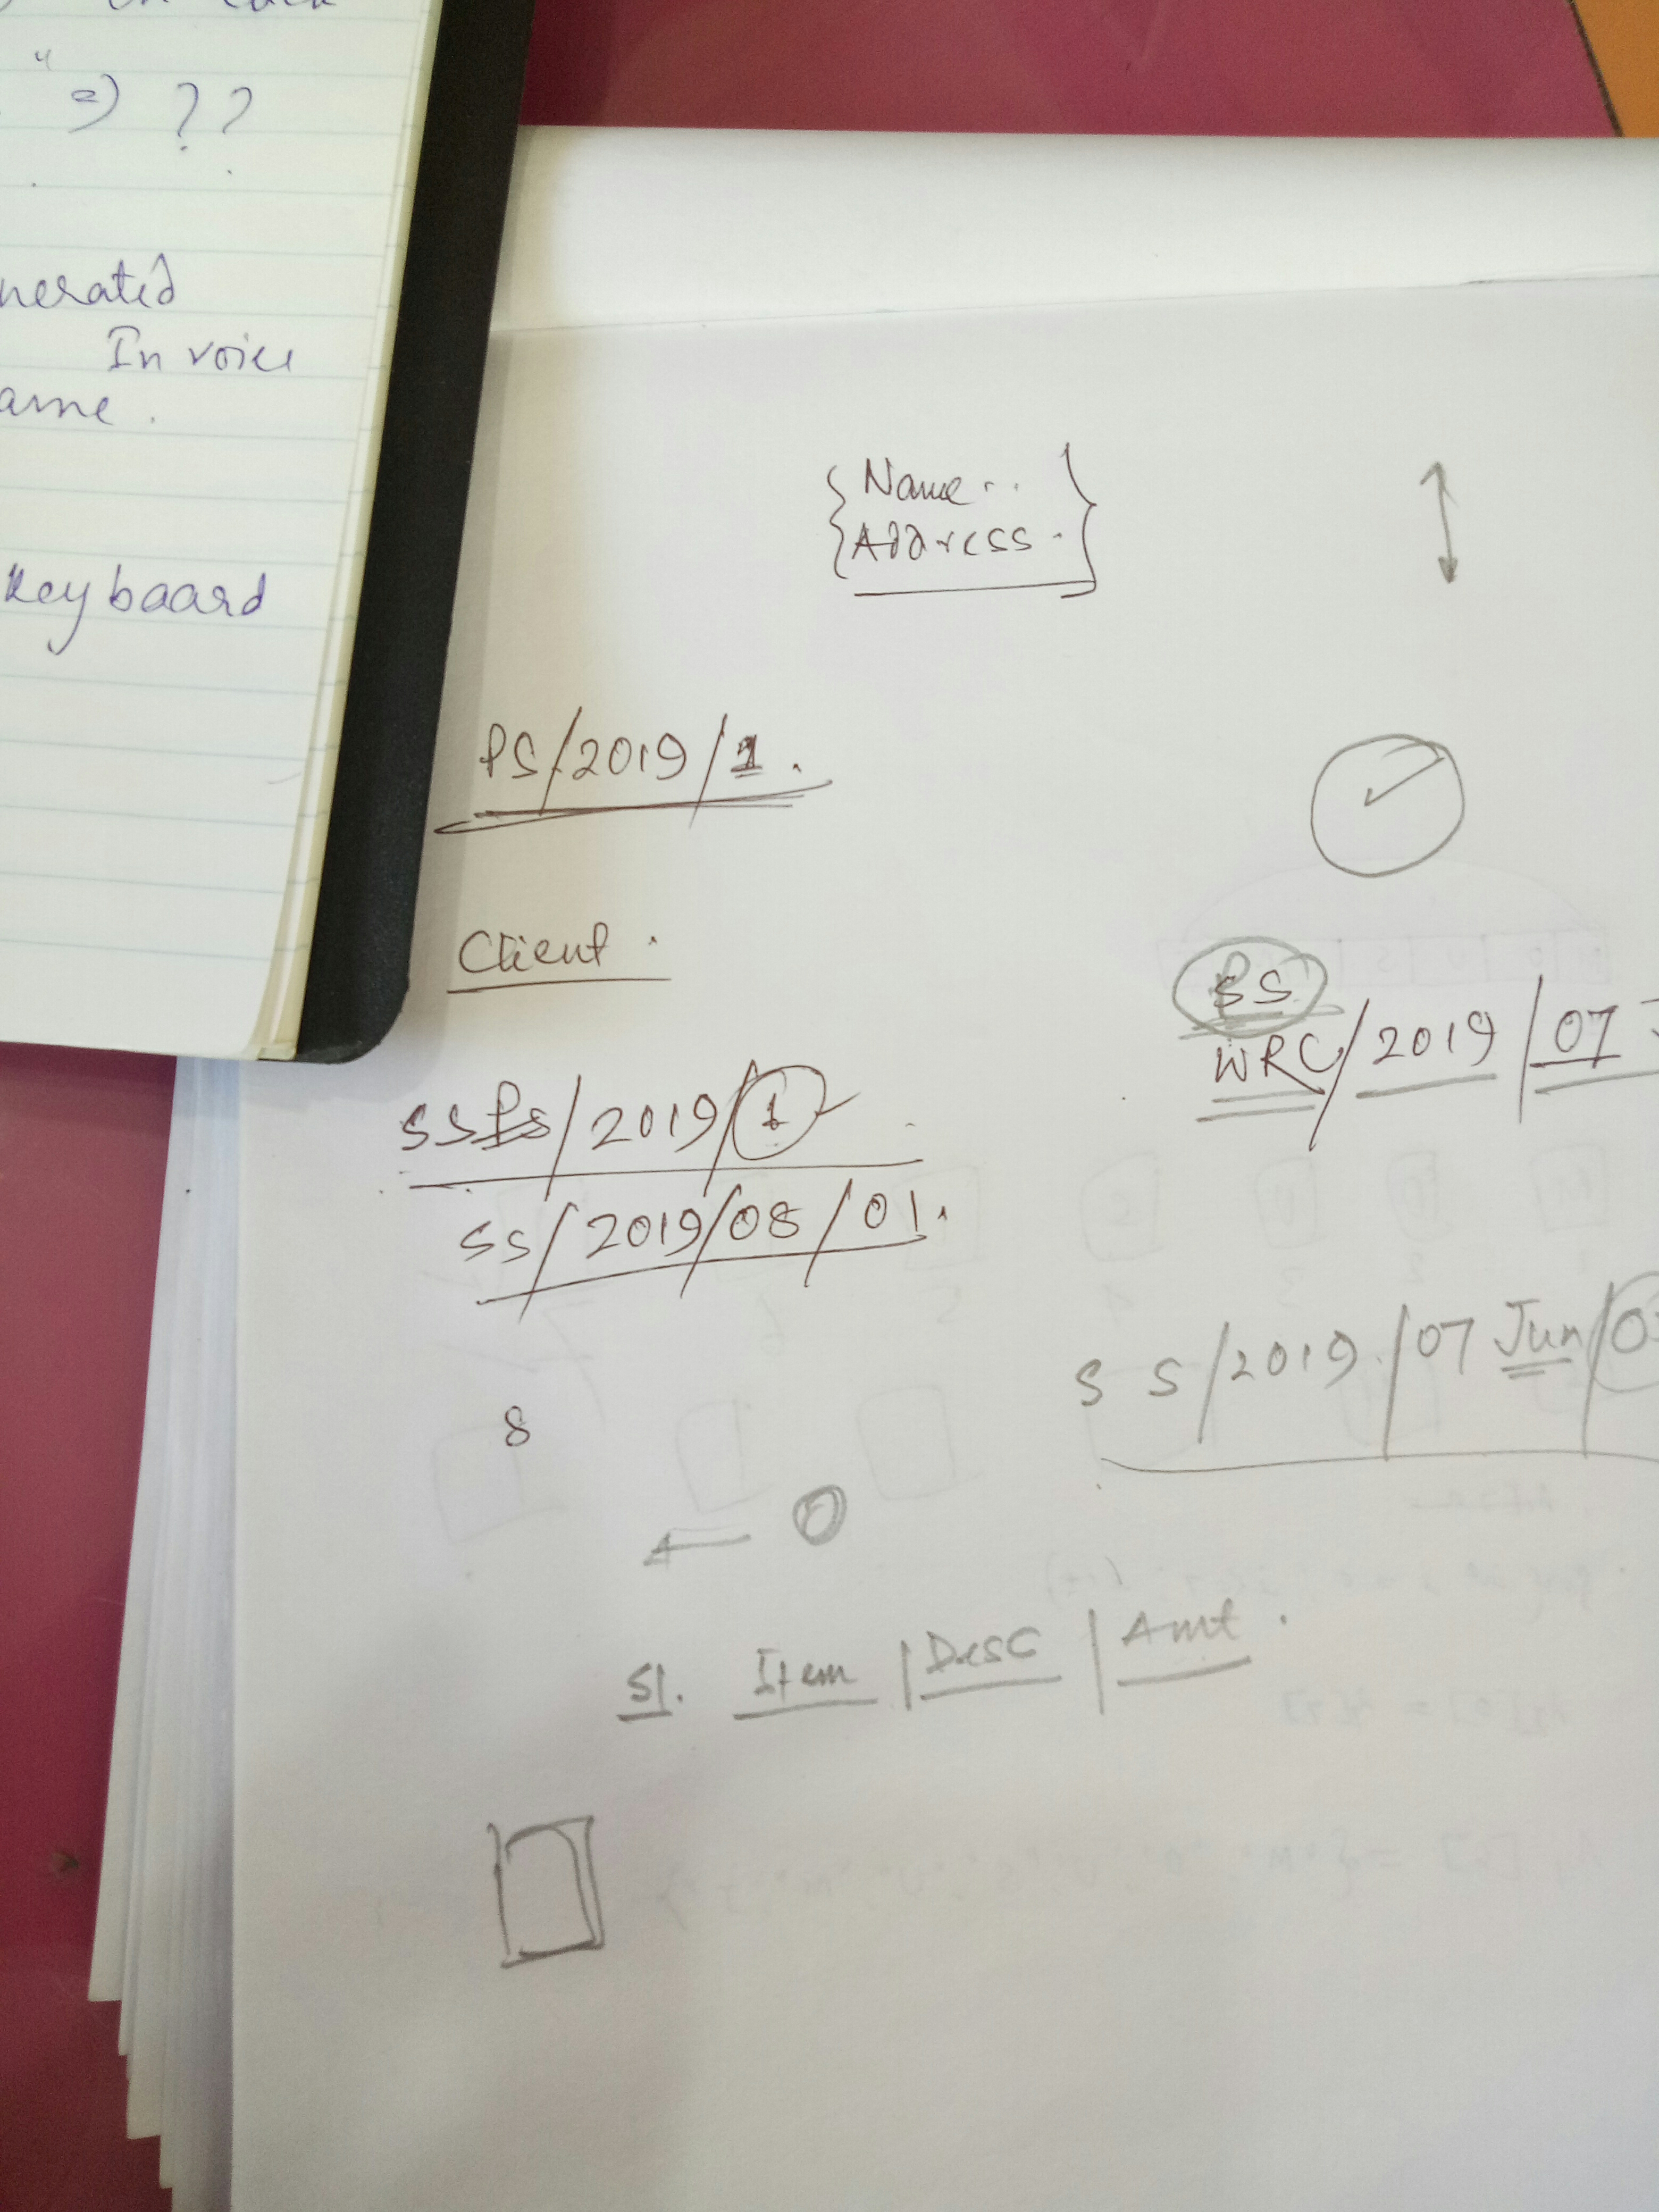 " => ??
nerated
Invoice
ame.
Keyboard
Name..
Address.
PS/2019/1.
Client.
PS
WRC/2019/07
SSPS/2019/1
SS/2019/08/01.
SS/2019/07 Jun/0
8
Sl. Item | Desc | Amt.